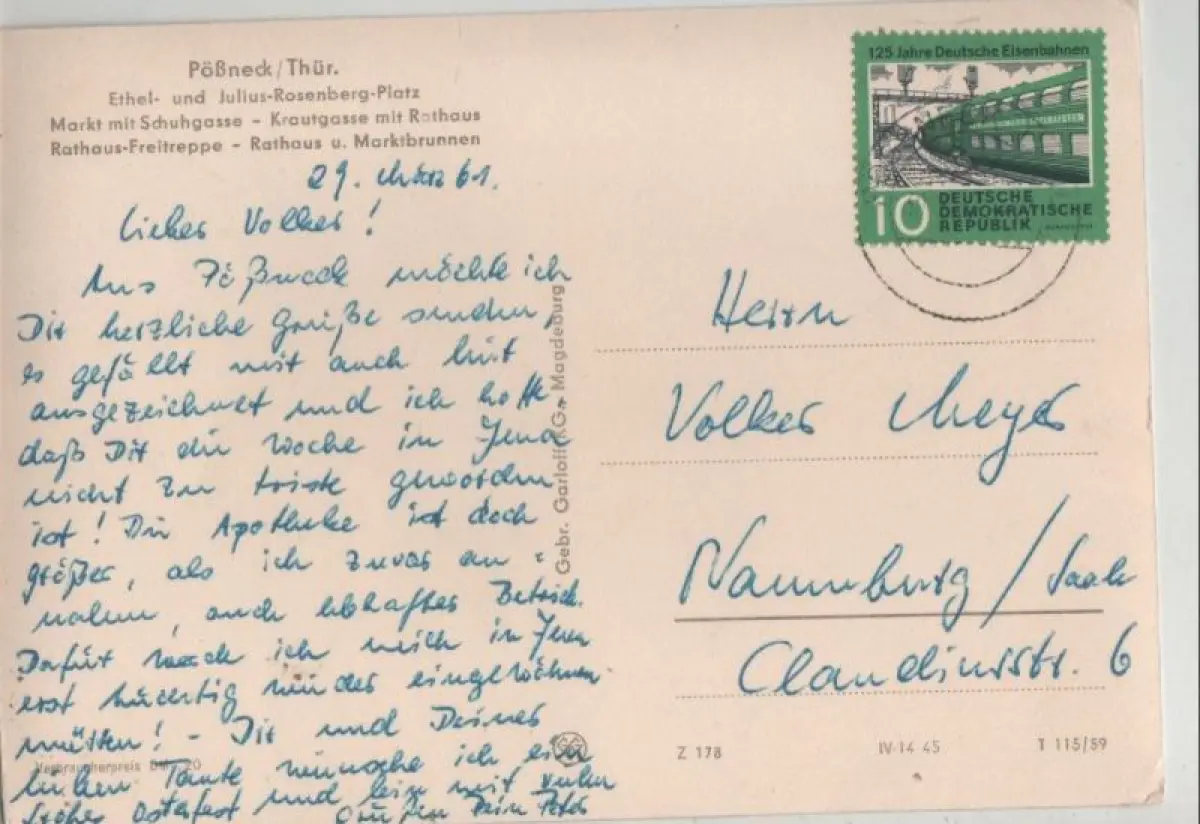 Pößneck/Thür.
Ethel- und Julius-Rosenberg-Platz
Markt mit Schuhgasse – Krautgasse mit Rathaus
Rathaus-Freitreppe – Rathaus u. Marktbrunnen
29. März 61.
Lieber Volker!
Aus Pößneck möchte ich
Dir herzliche Grüße senden,
es gefällt mir auch hier
ausgezeichnet und ich hoffe
daß Dir die Woche in Jena
nicht zu triste geworden
ist! Die Apotheke ist doch
größer, als ich zuvor an-
nahm, auch lebhafter Betrieb.
Dafür werde ich mich in Jena
erst tüchtig wieder eingewöhnen
müssen! – Dir und Deiner
lieben Tante wünsche ich ein
frohes Osterfest und bin mit vielen
Grüßen Dein Peter
Verbraucherpreis 20
Gebr. Garloff KG Magdeburg
125 Jahre Deutsche Eisenbahnen
10 DEUTSCHE
DEMOKRATISCHE
REPUBLIK
Herrn
Volker Meyer
Naumburg/Saale
Claudiusstr. 6
Z 178 IV-14 45 T 115/59